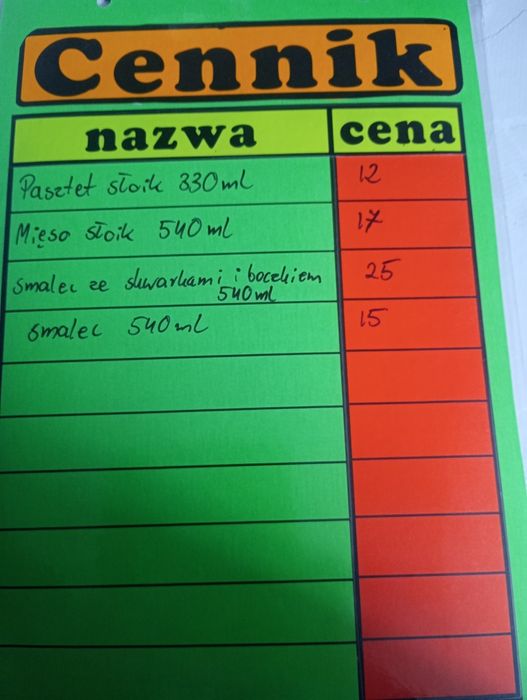 Cennik
nazwa cena
Pasztet słoik 330ml 12
Mięso słoik 540ml 17
smalec ze skwarkami i boczkiem 25
540ml
smalec 540ml 15